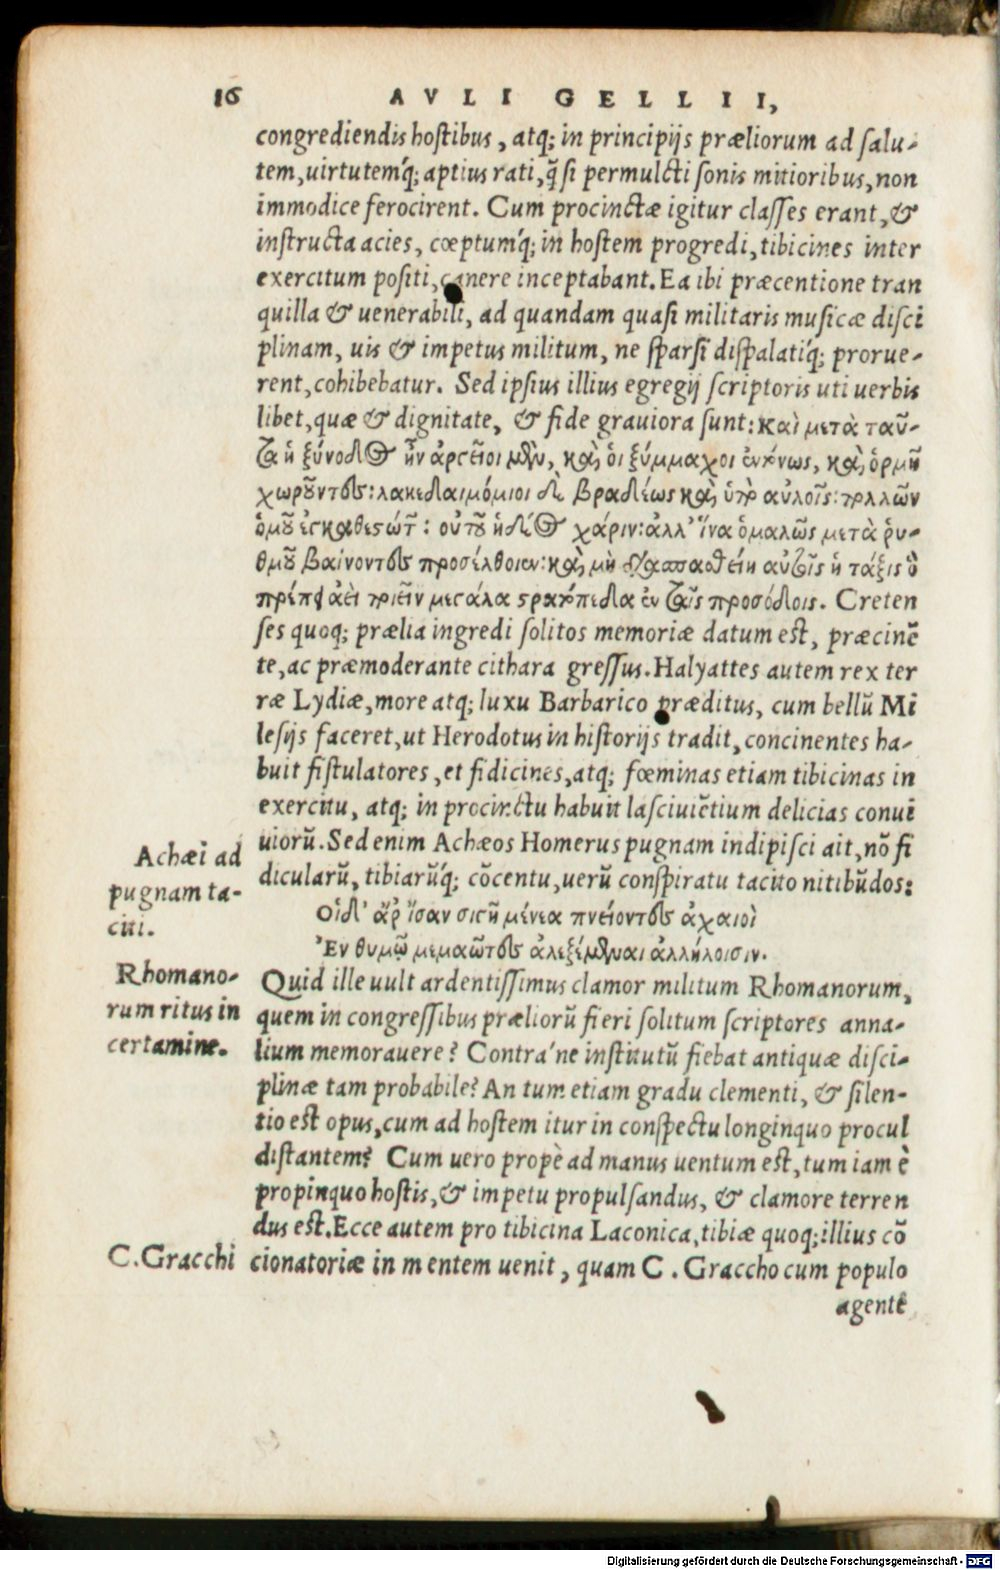 16 AVLI GELLII,
congrediendis hoſtibus, atq; in principijs præliorum ad ſalu-
tem, uirtutemq́; aptius rati, q̃ ſi permulcti ſonis mitioribus, non
immodice ferocirent. Cum procinctæ igitur claſſes erant, &
inſtructa acies, cœptumq́; in hoſtem progredi, tibicines inter
exercitum poſiti, canere inceptabant. Ea ibi præcentione tran
quilla & uenerabili, ad quandam quaſi militaris muſicæ diſci
plinam, uis & impetus militum, ne ſparſi diſpalatiq́; prorue-
rent, cohibebatur. Sed ipſius illius egregij ſcriptoris uti uerbis
libet, quæ & dignitate, & fide grauiora ſunt: καὶ μετὰ ταῦ-
τα ἡ ξύνοδος ἦν ἀργεῖοι μὲν, καὶ οἱ ξύμμαχοι ἐντόνως, καὶ ὀργῇ
χωροῦντες: λακεδαιμόνιοι δὲ βραδέως καὶ ὑπὸ αὐλοῖς: πολλῶν
ὁμοῦ ἐγκαθεστώτ: οὐ τοῦ ἡδέος χάριν: ἀλλ' ἵνα ὁμαλῶς μετὰ ῥυ-
θμοῦ βαίνοντες προσέλθοιεν: καὶ μὴ διασπασθείη αὐτοῖς ἡ τάξις ὃ
ἀεὶ ποιεῖν μεγάλα στρατόπεδα ἐν ταῖς προσόδοις. Creten
ſes quoq; prælia ingredi ſolitos memoriæ datum eſt, præcinẽ
te, ac præmoderante cithara greſſus. Halyattes autem rex ter
ræ Lydiæ, more atq; luxu Barbarico præditus, cum bellũ Mi
leſijs faceret, ut Herodotus in hiſtorijs tradit, concinentes ha-
buit fiſtulatores, et fidicines, atq; fœminas etiam tibicinas in
exercitu, atq; in procinctu habuit laſciuiẽtium delicias conui
uiorũ. Sed enim Achæos Homerus pugnam indipiſci ait, nõ fi
dicularũ, tibiarũq́; cõcentu, uerũ conſpiratu tacito nitibũdos:
Οἱ δ' ἄρ' ἴσαν σιγῇ μένεα πνείοντες ἀχαιοὶ
Ἐν θυμῷ μεμαῶτες ἀλεξέμεναι ἀλλήλοισιν.
Quid ille uult ardentiſſimus clamor militum Rhomanorum,
quem in congreſſibus præliorũ fieri ſolitum ſcriptores anna-
lium memorauere? Contra'ne inſtitutũ fiebat antiquæ diſci-
plinæ tam probabile? An tum etiam gradu clementi, & ſilen-
tio eſt opus, cum ad hoſtem itur in conſpectu longinquo procul
diſtantem? Cum uero propè ad manus uentum eſt, tum iam è
propinquo hoſtis, & impetu propulſandus, & clamore terren
dus eſt. Ecce autem pro tibicina Laconica, tibiæ quoq; illius cõ
cionatoriæ in mentem uenit, quam C. Graccho cum populo
agentẽ
Achæi ad
pugnam ta-
citi.
Rhomano-
rum ritus in
certamine.
C. Gracchi
Digitalisierung gefördert durch die Deutsche Forschungsgemeinschaft - DFG